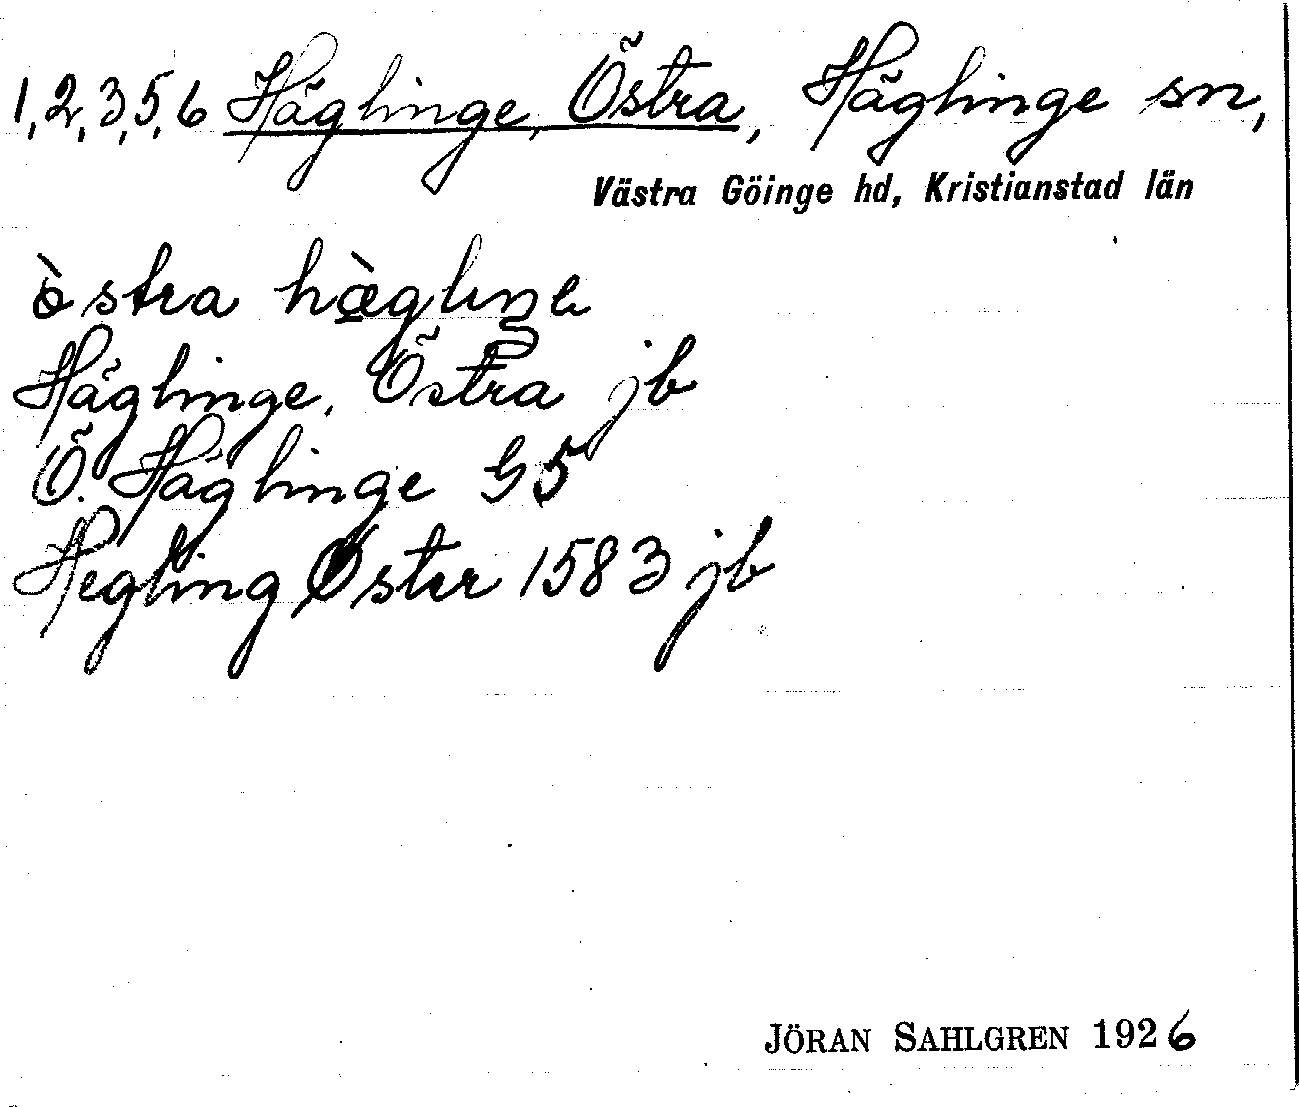 1,2,3,5,6 Häglinge, Östra, Häglinge sn,
Västra Göinge hd, Kristianstad län
östra hæglinge
Häglinge, Östra jb
Ö. Häglinge G5
Hegling Øster 1583 jb
JÖRAN SAHLGREN 1926